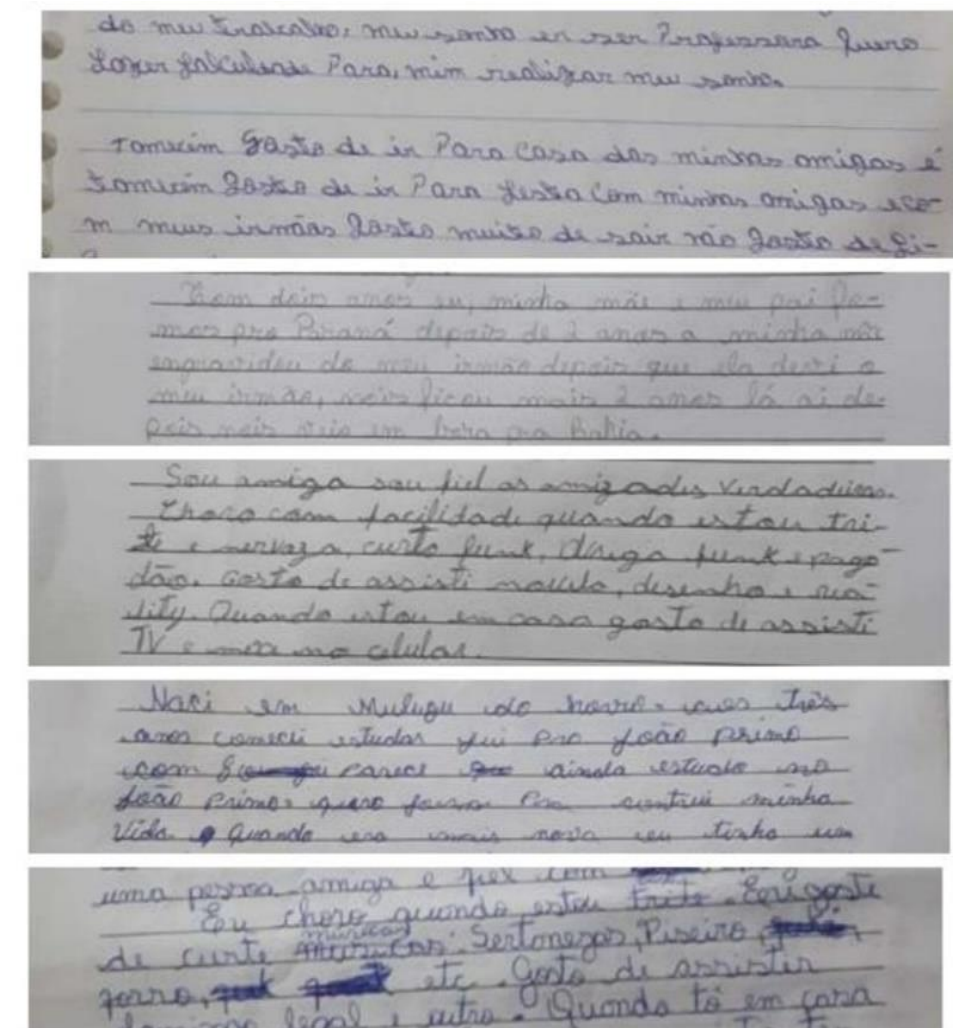 do meu trabalho, meu sonho er ser Professora Quero
fazer falculdade Para, mim realizar meu sonho.
Tomeim Gosto de ir Para Casa das minhas amigas é
tomeim Gosto de ir Para festa Com minhas amigas e co-
m meus irmãos Gosto muito de sair não Gosto de fi-
dois anos eu, minha mãe e meu pai fo-
mos pro Paraná depois de 2 anos a minha mãe
engravidou do meu irmão depois que ela devi o
meu irmão, nois ficou mais 2 anos lá ai de-
pois nois veio em bora pra Bahia.
Sou amiga sou fiel as amizades verdadeiras.
Choro com facilidade quando estou tri-
te e nervoza, curto funk, brega funk e pago-
dão. Gosto de assisti novela, desenho e rea-
lity. Quando estou em casa gosto de assisti
TV e mexe no celular.
Naci em Mulugu do aos três
anos comecei estudar fui pro João primo
com parece ainda estudo no
João Primo. quero pra contrui minha
Vida. Quando era mais nova eu tinha um
uma pessoa amiga e fiel com
Eu choro quando estou trite. Eu gosto
de curte músicas Sertonezas, Piseiro,
forro, etc. Gosto de assistir
legal e outro. Quando tô em casa